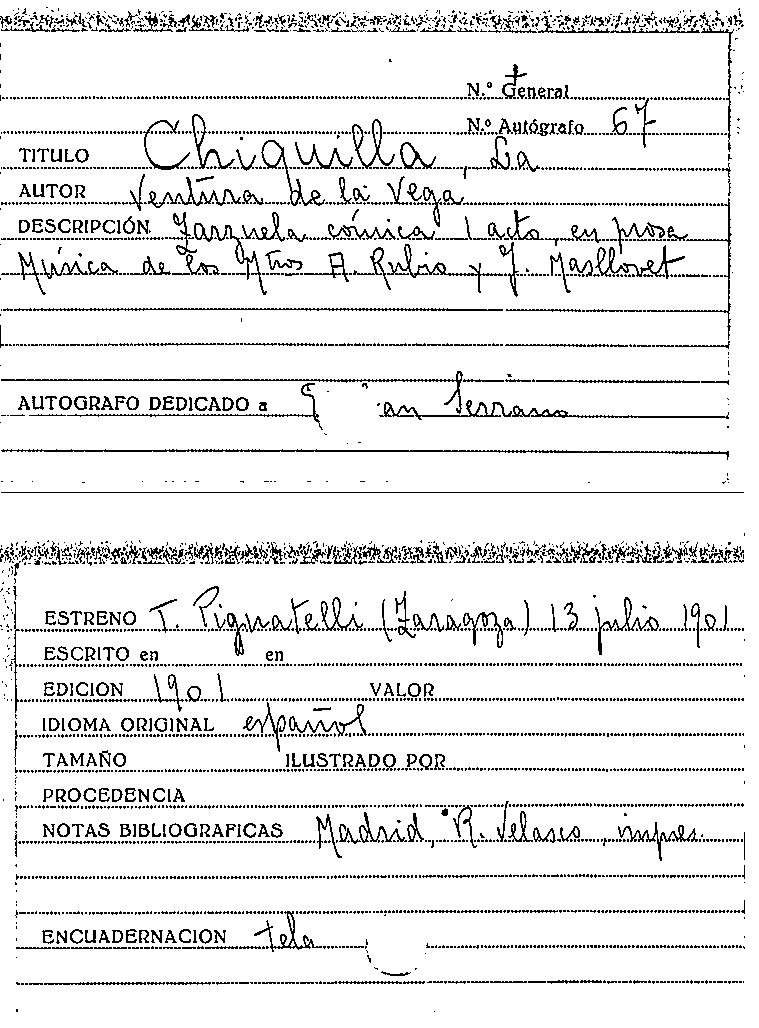 N.º General
N.º Autógrafo 67
TITULO Chiquilla, La
AUTOR Ventura de la Vega
DESCRIPCIÓN Zarzuela cómica 1 acto, en prosa
Música de los Mtros A. Rubio y J. Masllovet
AUTOGRAFO DEDICADO a Serrano
ESTRENO T. Pignatelli (Zaragoza) 13 julio 1901
ESCRITO en en
EDICION 1901 VALOR
IDIOMA ORIGINAL español
TAMAÑO ILUSTRADO POR
PROCEDENCIA
NOTAS BIBLIOGRAFICAS Madrid, R. Velasco, impres.
ENCUADERNACION tela